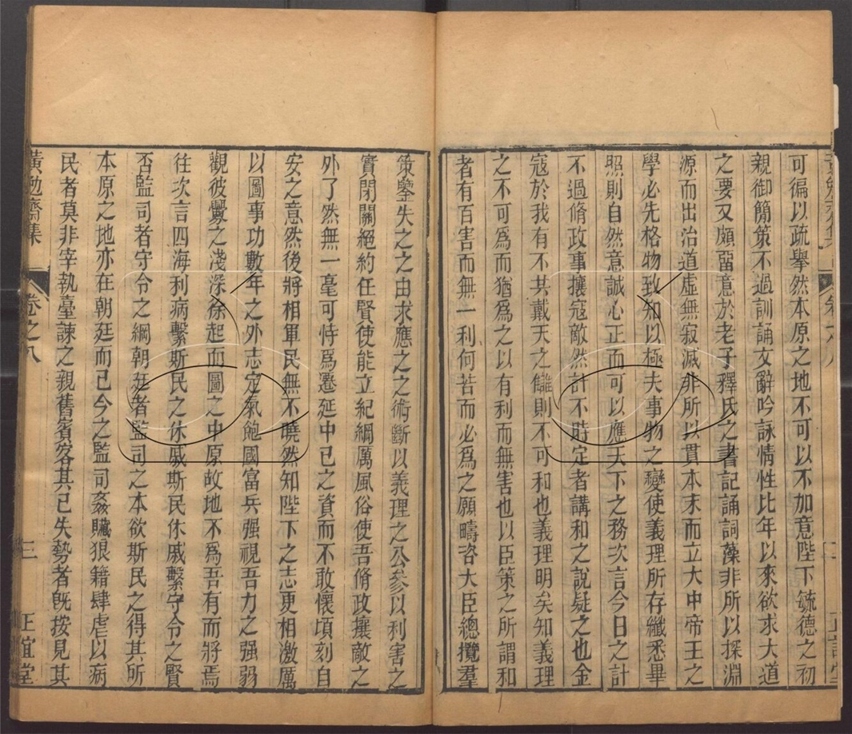 可徧以疏舉然本原之地不可以不加意陛下毓德之初
親御簡策不過訓誦文辭吟詠情性比年以來欲求大道
之要又頗畱意於老子釋氏之書記誦詞藻非所以探淵
源而出治道虛無寂滅非所以貫本末而立大中帝王之
學必先格物致知以極夫事物之變使義理所存纖悉畢
照則自然意誠心正而可以應天下之務次言今日之計
不過脩政事攘寇敵然計不時定者講和之說疑之也金
寇於我有不共戴天之讎則不可和也義理明矣知義理
之不可為而猶為之以有利而無害也以臣策之所謂和
者有百害而無一利何苦而必為之願疇咨大臣總攬羣
策鑒失之之由求應之之術斷以義理之公參以利害之
實閉關絕約任賢使能立紀綱厲風俗使吾脩政攘敵之
外了然無一毫可恃爲遷延中已之資而不敢懷頃刻自
安之意然後將相軍民無不曉然知陛下之志更相激厲
以圖事功數年之外志定氣飽國富兵强視吾力之强弱
觀彼釁之淺深徐起而圖之中原故地不爲吾有而將焉
往次言四海利病繫斯民之休戚斯民休戚繫守令之賢
否監司者守令之綱朝廷者監司之本欲斯民之得其所
本原之地亦在朝廷而已今之監司姦贓狼籍肆虐以病
民者莫非宰執臺諫之親舊賓客其已失勢者旣按見其
黃勉齋集 卷之八 三 正誼堂